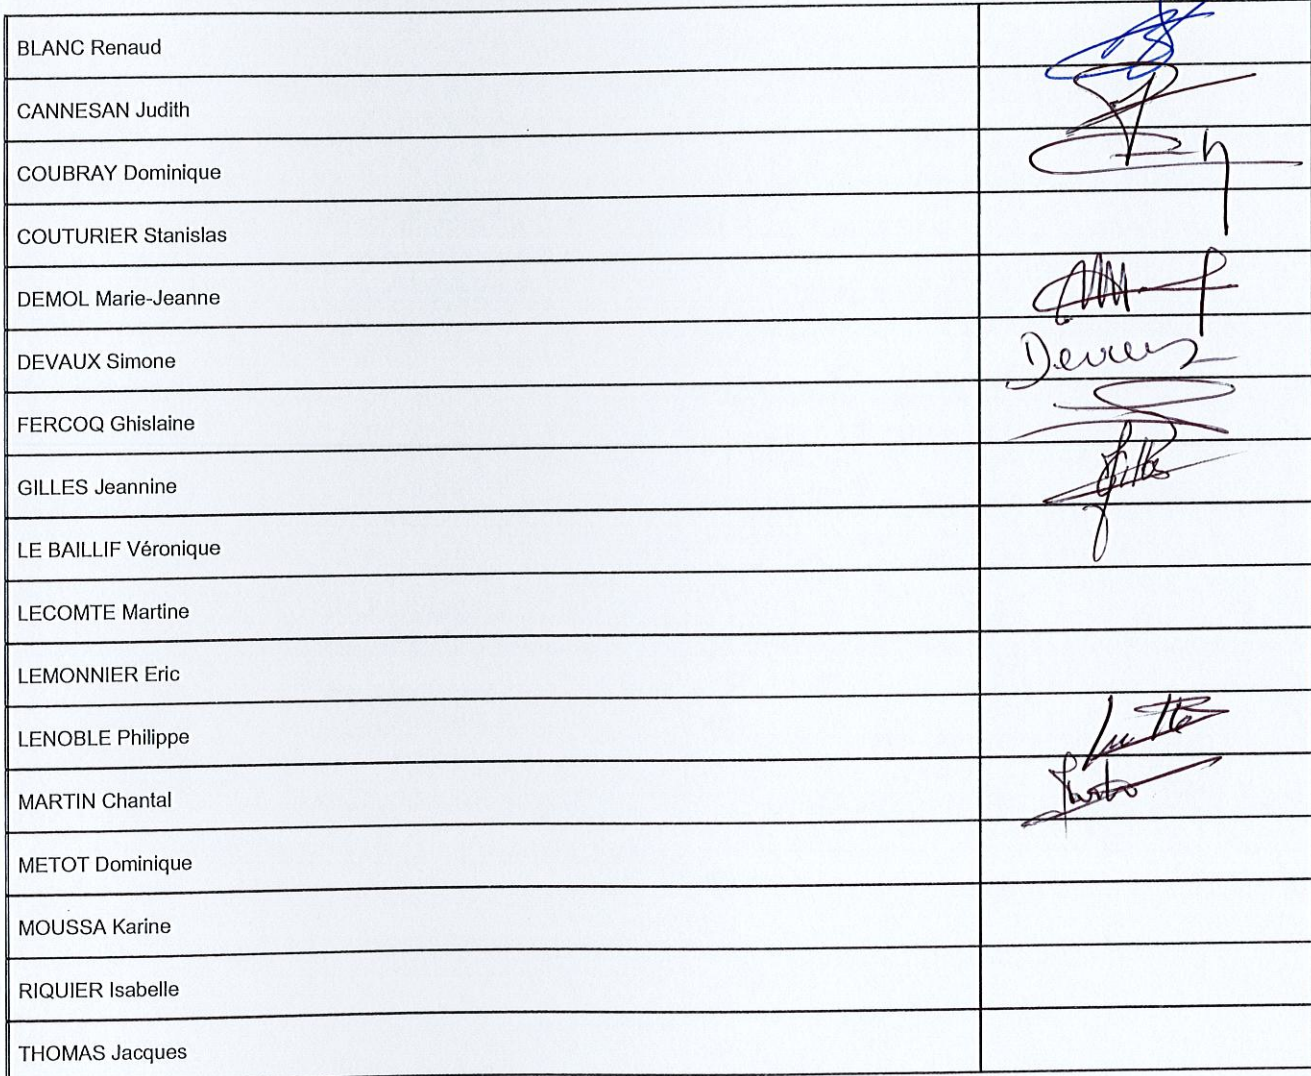 BLANC Renaud
CANNESAN Judith
COUBRAY Dominique
COUTURIER Stanislas
DEMOL Marie-Jeanne
DEVAUX Simone
FERCOQ Ghislaine
GILLES Jeannine
LE BAILLIF Véronique
LECOMTE Martine
LEMONNIER Eric
LENOBLE Philippe
MARTIN Chantal
METOT Dominique
MOUSSA Karine
RIQUIER Isabelle
THOMAS Jacques